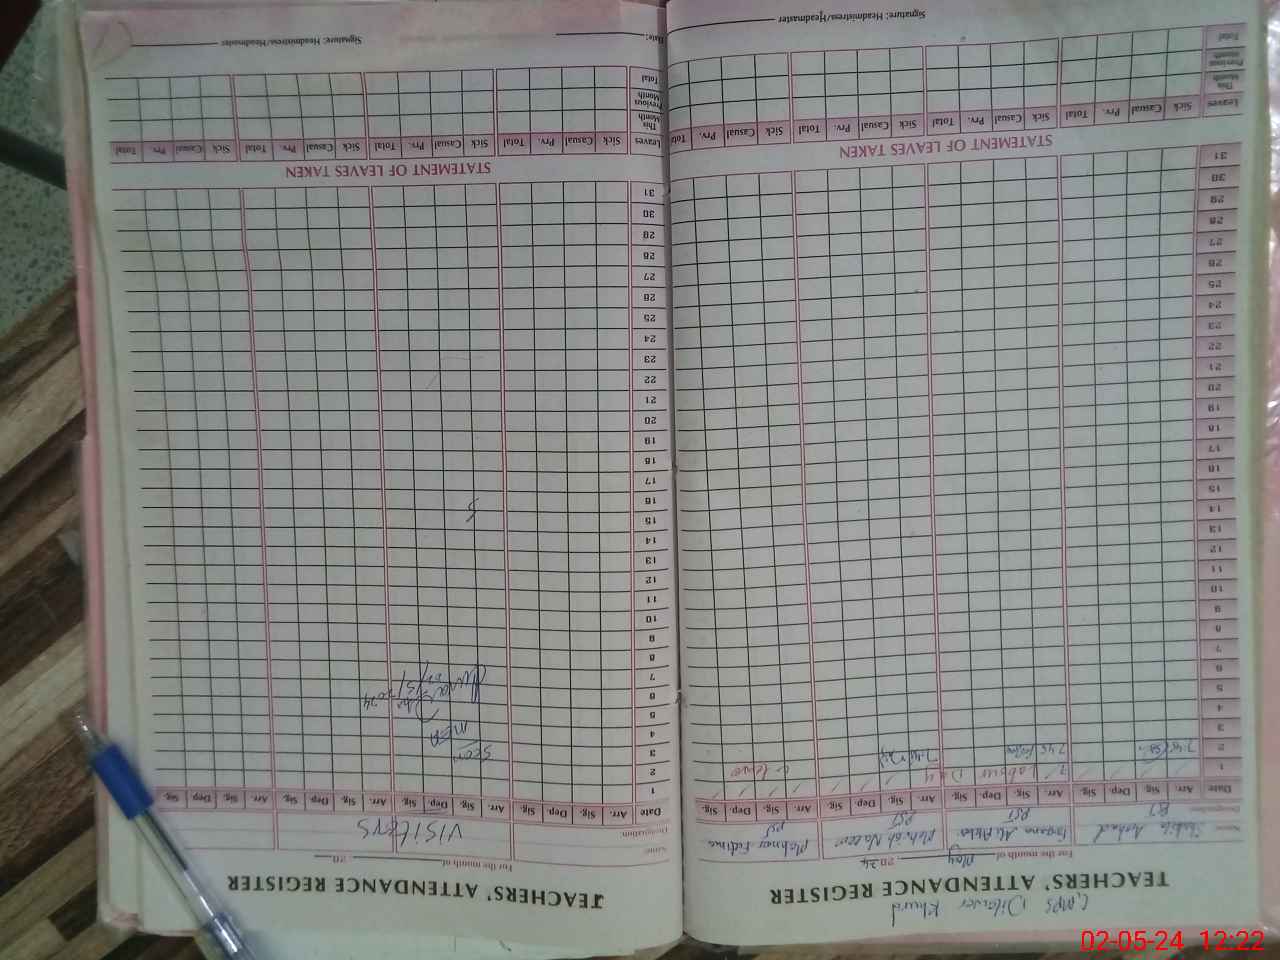 GMPS Dilawar Khurd
TEACHERS' ATTENDANCE REGISTER
For the month of May 2024
Name
Designation
PST PST PST
Date Arr. Sig. Dep. Sig. Arr. Sig. Dep. Sig. Arr. Sig. Dep. Sig. Arr. Sig. Dep. Sig.
1 Labour Day
2 7:45 7:45 7:45 leave
3
4
5
6
7
8
9
10
11
12
13
14
15
16
17
18
19
20
21
22
23
24
25
26
27
28
29
30
31
STATEMENT OF LEAVES TAKEN
Leaves Sick Casual Prv. Total Sick Casual Prv. Total Sick Casual Prv. Total Sick Casual Prv. Total
This Month
Previous Month
Total
Signature: Headmistress/Headmaster
TEACHERS' ATTENDANCE REGISTER
For the month of 20
Name
Designation
VISITERS
Date Arr. Sig. Dep. Sig. Arr. Sig. Dep. Sig. Arr. Sig. Dep. Sig. Arr. Sig. Dep. Sig.
1
2
3 Seen
4 MEA
5
6
7
8
9
10
11
12
13
14
15
16
17
18
19
20
21
22
23
24
25
26
27
28
29
30
31
STATEMENT OF LEAVES TAKEN
Leaves Sick Casual Prv. Total Sick Casual Prv. Total Sick Casual Prv. Total Sick Casual Prv. Total
This Month
Previous Month
Total
Date: Signature: Headmistress/Headmaster
02-05-24 12:22